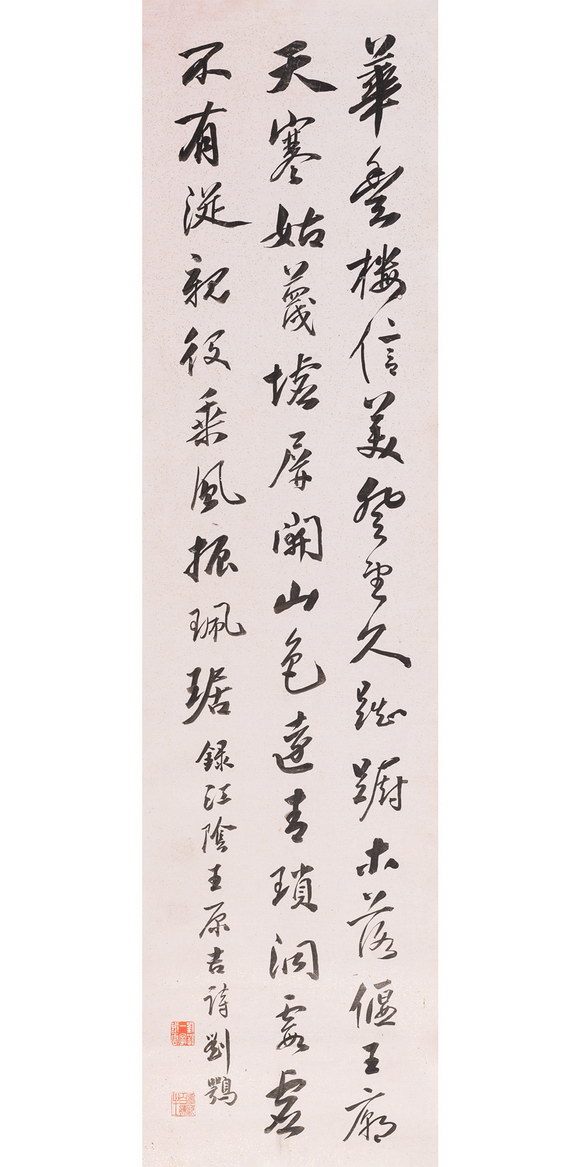 華豐樓信美登望久踟躕木落偃王廟
天寒姑蔑墟屏開山色遠青瑣洞霞虛
不有從親役乘風振珮琚
錄江陰王原吉詩劉鶚